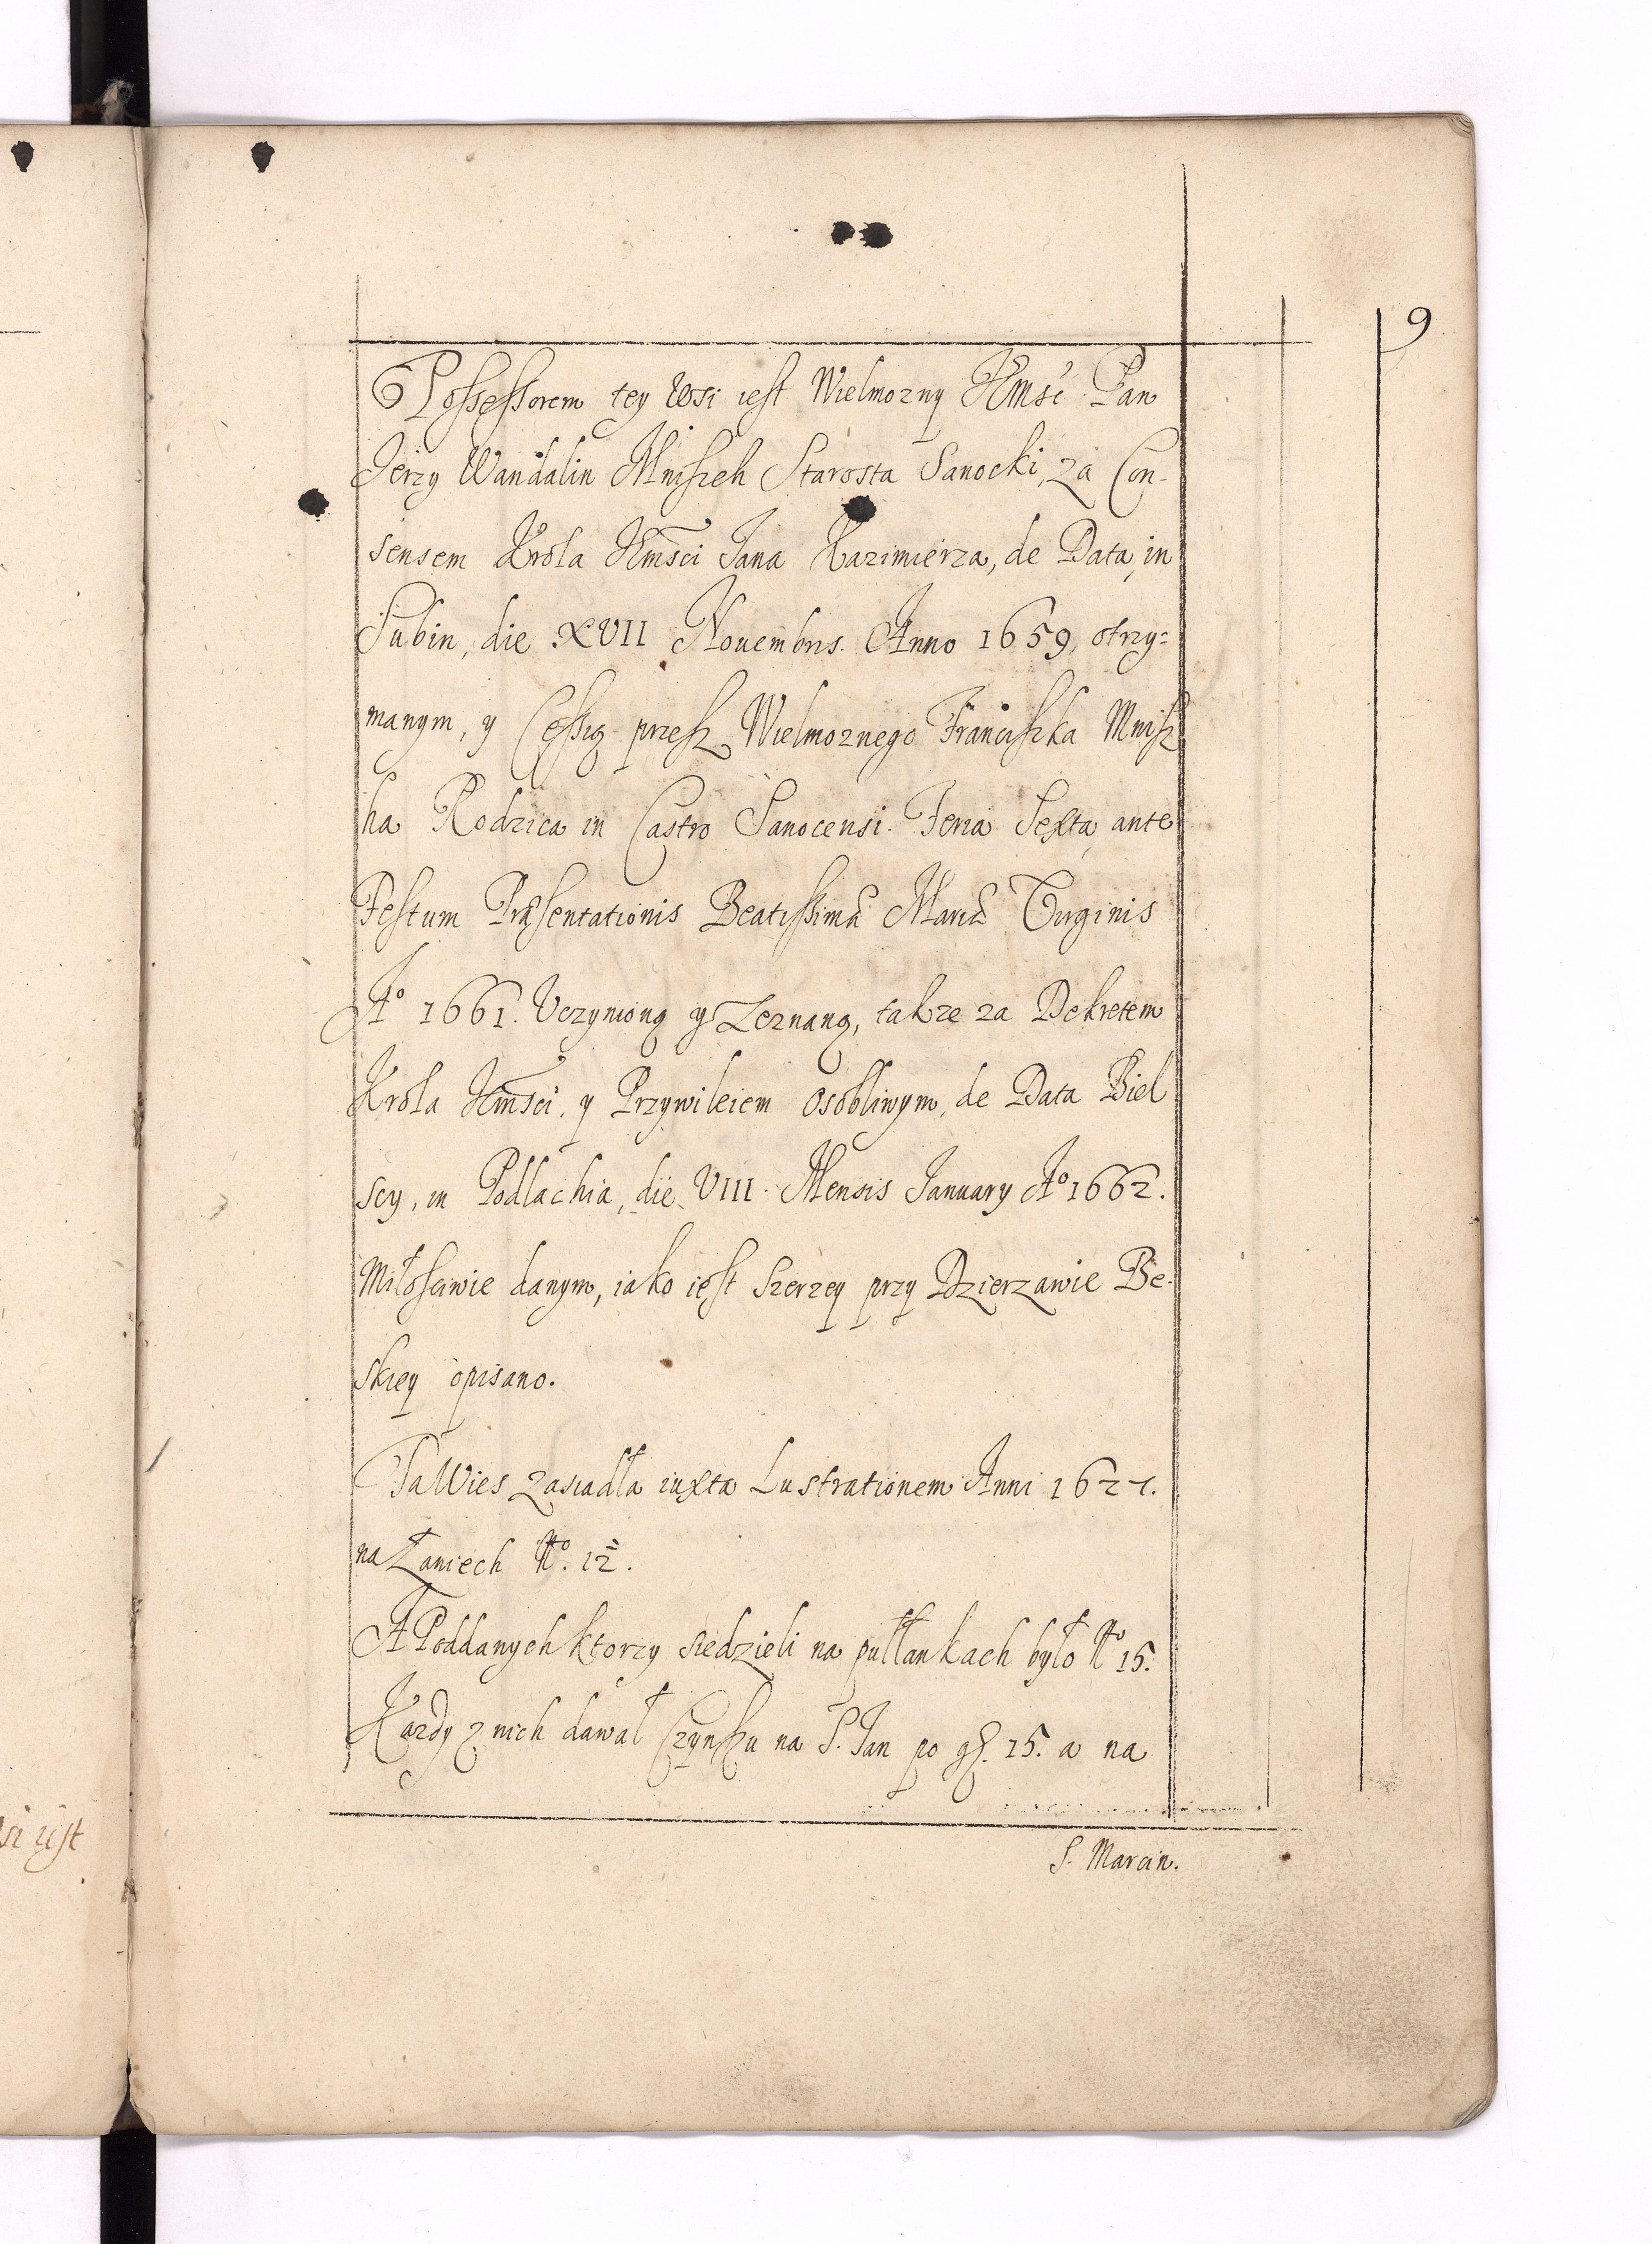 9
Possessorem tey Wsi iest Wielmozny Jmść Pan
Jerzy Wandalin Mniszch Starosta Sanocki, za Con-
sensem Krola Jmsci Jana Kazimierza, de Data, in
Subin, die XVII Nouembris. Anno 1659, otrzy=
manym, y Cessią przesz Wielmoznego Franciszka Mnisz
ha Rodzica in Castro Sanocensi. Feria Sexta ante
Festum Præsentationis Beatissimæ Mariæ Virginis
Aº 1661. Uczynioną y Zeznaną, takze za Dekretem
Krola Jmsci, y Przywileiem osobliwym, de Data Biel
scy, in Podlachia, die VIII. Mensis January Aº 1662.
Miłosciwie danym, iako iest szerzey przy Dzierzawie Be-
skiey opisano.
Ta Wies zasiadła iuxta Lustrationem Anni 1627.
na Łaniech Nº. 12.
A Poddanych ktorzy siedzieli na pułłankach było Nº 15.
Kazdy z nich dawał Czynszu na S. Jan po gr. 15. a na
S. Marcin.
si iest